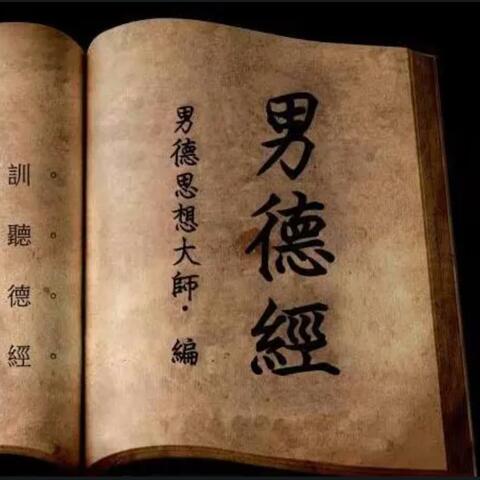 男德經
男德思想大師·編
。。。。
訓聽德經